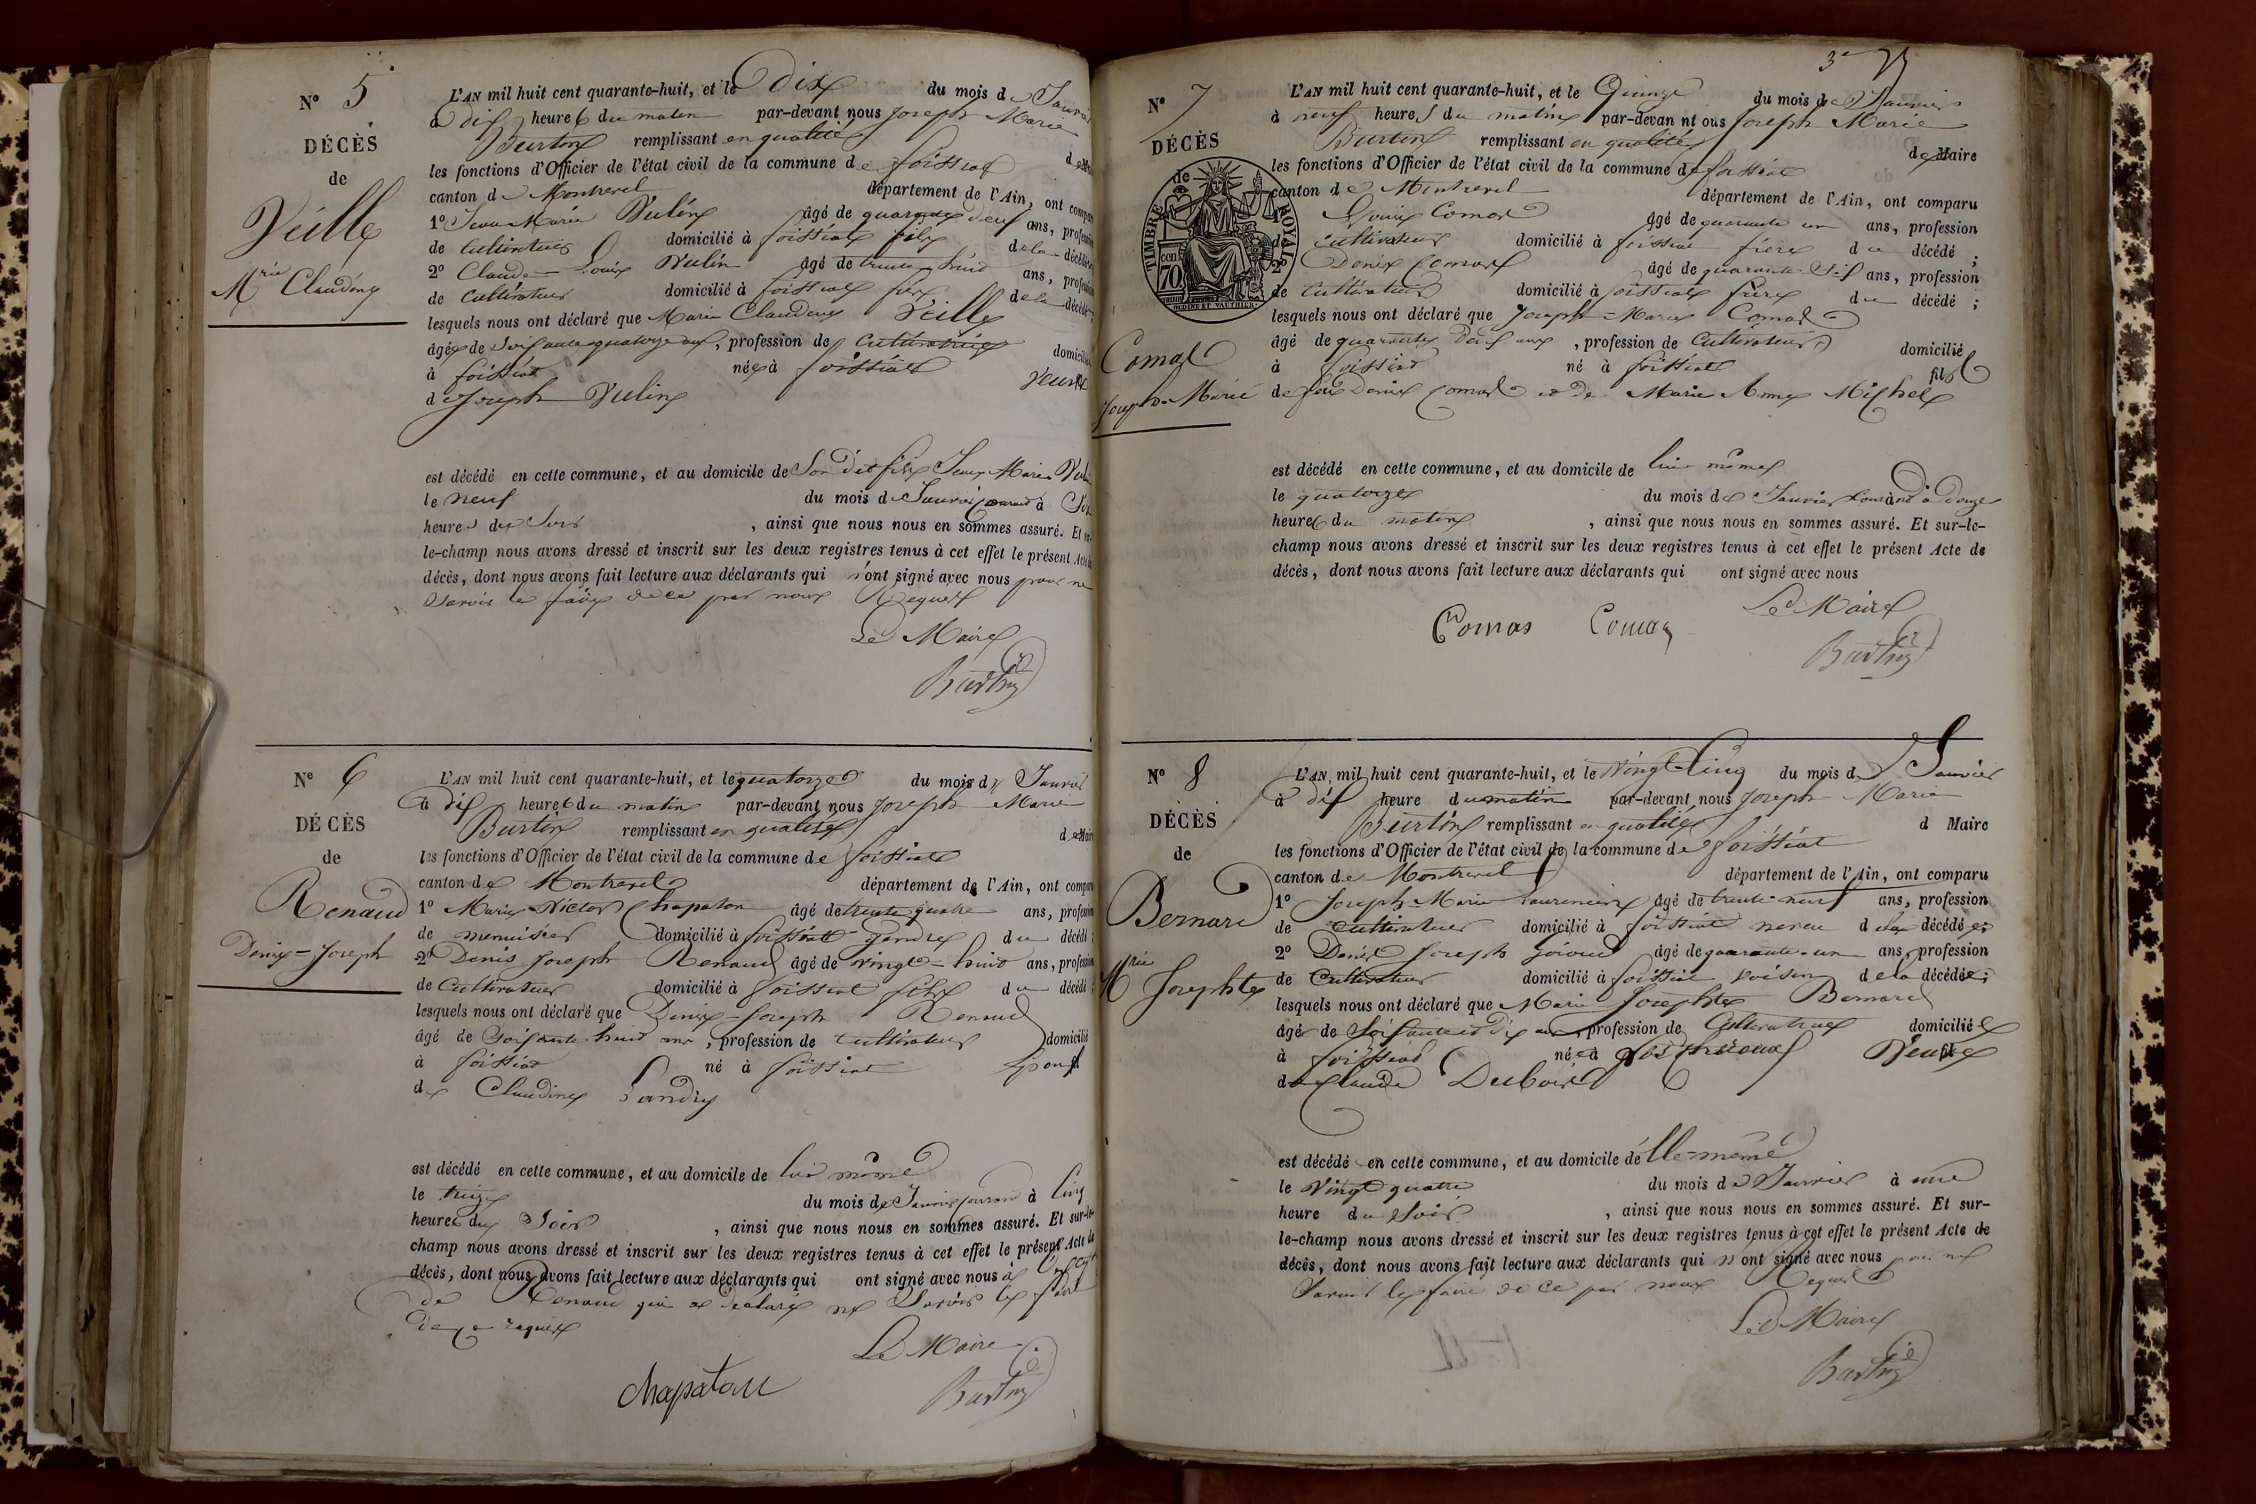 N° 5
DÉCÈS
de
Veille
Mrie Claudine
L'AN mil huit cent quarante-huit, et le Dix du mois de Janvier
à dix heures du matin par-devant nous Joseph Marie
Burtin remplissant en qualité de Maire
les fonctions d'Officier de l'état civil de la commune de foissiat
canton de Montrevel département de l'Ain, ont comparu
1° Jean Marie Vulin âgé de quarante deux ans, profession
de cultivateur domicilié à foissiat fils de la décédée
2° Claude Louis Vulin âgé de trente huit ans, profession
de cultivateur domicilié à foissiat fils de la décédée;
lesquels nous ont déclaré que Marie Claudine Veille
âgée de soixante quatorze ans, profession de cultivatrice domiciliée
à foissiat née à foissiat Veuve
de Joseph Vulin
est décédé en cette commune, et au domicile de Son dit fils Jean Marie Vulin
le neuf du mois de Janvier courant à Six
heures du Soir, ainsi que nous nous en sommes assuré. Et sur-
le-champ nous avons dressé et inscrit sur les deux registres tenus à cet effet le présent Acte de
décès, dont nous avons fait lecture aux déclarants qui n'ont signé avec nous pour ne
savoir le faire de ce par nous Requis
Le Maire
Burtin
N° 6
DÉCÈS
de
Renaud
Denis=Joseph
L'AN mil huit cent quarante-huit, et le quatorze du mois de Janvier
à dix heures du matin par-devant nous Joseph Marie
Burtin remplissant en qualité de Maire
les fonctions d'Officier de l'état civil de la commune de foissiat
canton de Montrevel département de l'Ain, ont comparu
1° Marie Victor Chapaton âgé de trente quatre ans, profession
de menuisier domicilié à foissiat gendre du décédé;
2° Denis Joseph Renaud âgé de vingt-huit ans, profession
de Cultivateur domicilié à foissiat fils du décédé;
lesquels nous ont déclaré que Denis=Joseph Renaud
âgé de soixante huit ans, profession de cultivateur domicilié
à foissiat né à foissiat Epoux
de Claudine Pandry
est décédé en cette commune, et au domicile de lui même
le treize du mois de Janvier courant à Cinq
heures du Soir, ainsi que nous nous en sommes assuré. Et sur-le-
champ nous avons dressé et inscrit sur les deux registres tenus à cet effet le présent Acte de
décès, dont nous avons fait lecture aux déclarants qui ont signé avec nous à l'exception
de Renaud qui a déclaré ne Savoir le faire
de ce requis
Le Maire
chapaton
Burtin
3e
N° 7
DÉCÈS
de
TIMBRE ROYAL
70
Comas
Joseph=Marie
L'AN mil huit cent quarante-huit, et le Quinze du mois de Janvier
à neuf heures du matin par-devan nt ous Joseph Marie
Burtin remplissant en qualité de Maire
les fonctions d'Officier de l'état civil de la commune de foissiat
canton de Montrevel département de l'Ain, ont comparu
1° Louis Comas âgé de quarante un ans, profession
de cultivateur domicilié à foissiat frère du décédé;
2° Denis Comas âgé de quarante-six ans, profession
de Cultivateur domicilié à foissiat frère du décédé;
lesquels nous ont déclaré que Joseph=Marie Comas
âgé de quarante deux ans, profession de Cultivateur domicilié
à foissiat né à foissiat fils
de feu Denis Comas et de Marie Anne Michel
est décédé en cette commune, et au domicile de lui même
le quatorze du mois de Janvier courant à Douze
heures du matin, ainsi que nous nous en sommes assuré. Et sur-le-
champ nous avons dressé et inscrit sur les deux registres tenus à cet effet le présent Acte de
décès, dont nous avons fait lecture aux déclarants qui ont signé avec nous
Le Maire
Comas Comas
Burtin
N° 8
DÉCÈS
de
Bernard
Mrie Josephte
L'AN mil huit cent quarante-huit, et le Vingt Cinq du mois de Janvier
à dix heure du matin par-devant nous Joseph Marie
Burtin remplissant en qualité d Maire
les fonctions d'Officier de l'état civil de la commune de foissiat
canton de Montrevel département de l'Ain, ont comparu
1° Joseph Marie Laurencin âgé de trente-neuf ans, profession
de cultivateur domicilié à foissiat neveu de la décédée;
2° Denis Joseph âgé de quarante-un ans, profession
de Cultivateur domicilié à foissiat voisin de la décédée;
lesquels nous ont déclaré que Marie Josephte Bernard
âgée de Soixante et Dix ans, profession de Cultivatrice domiciliée
à foissiat née à Veuve
de Claude Dubois
est décédé en cette commune, et au domicile d'elle-même
le Vingt quatre du mois de Janvier à une
heure du Soir, ainsi que nous nous en sommes assuré. Et sur-
le-champ nous avons dressé et inscrit sur les deux registres tenus à cet effet le présent Acte de
décès, dont nous avons fait lecture aux déclarants qui n'ont signé avec nous pour ne
savoir le faire de ce par nous Requis
Le Maire
Burtin